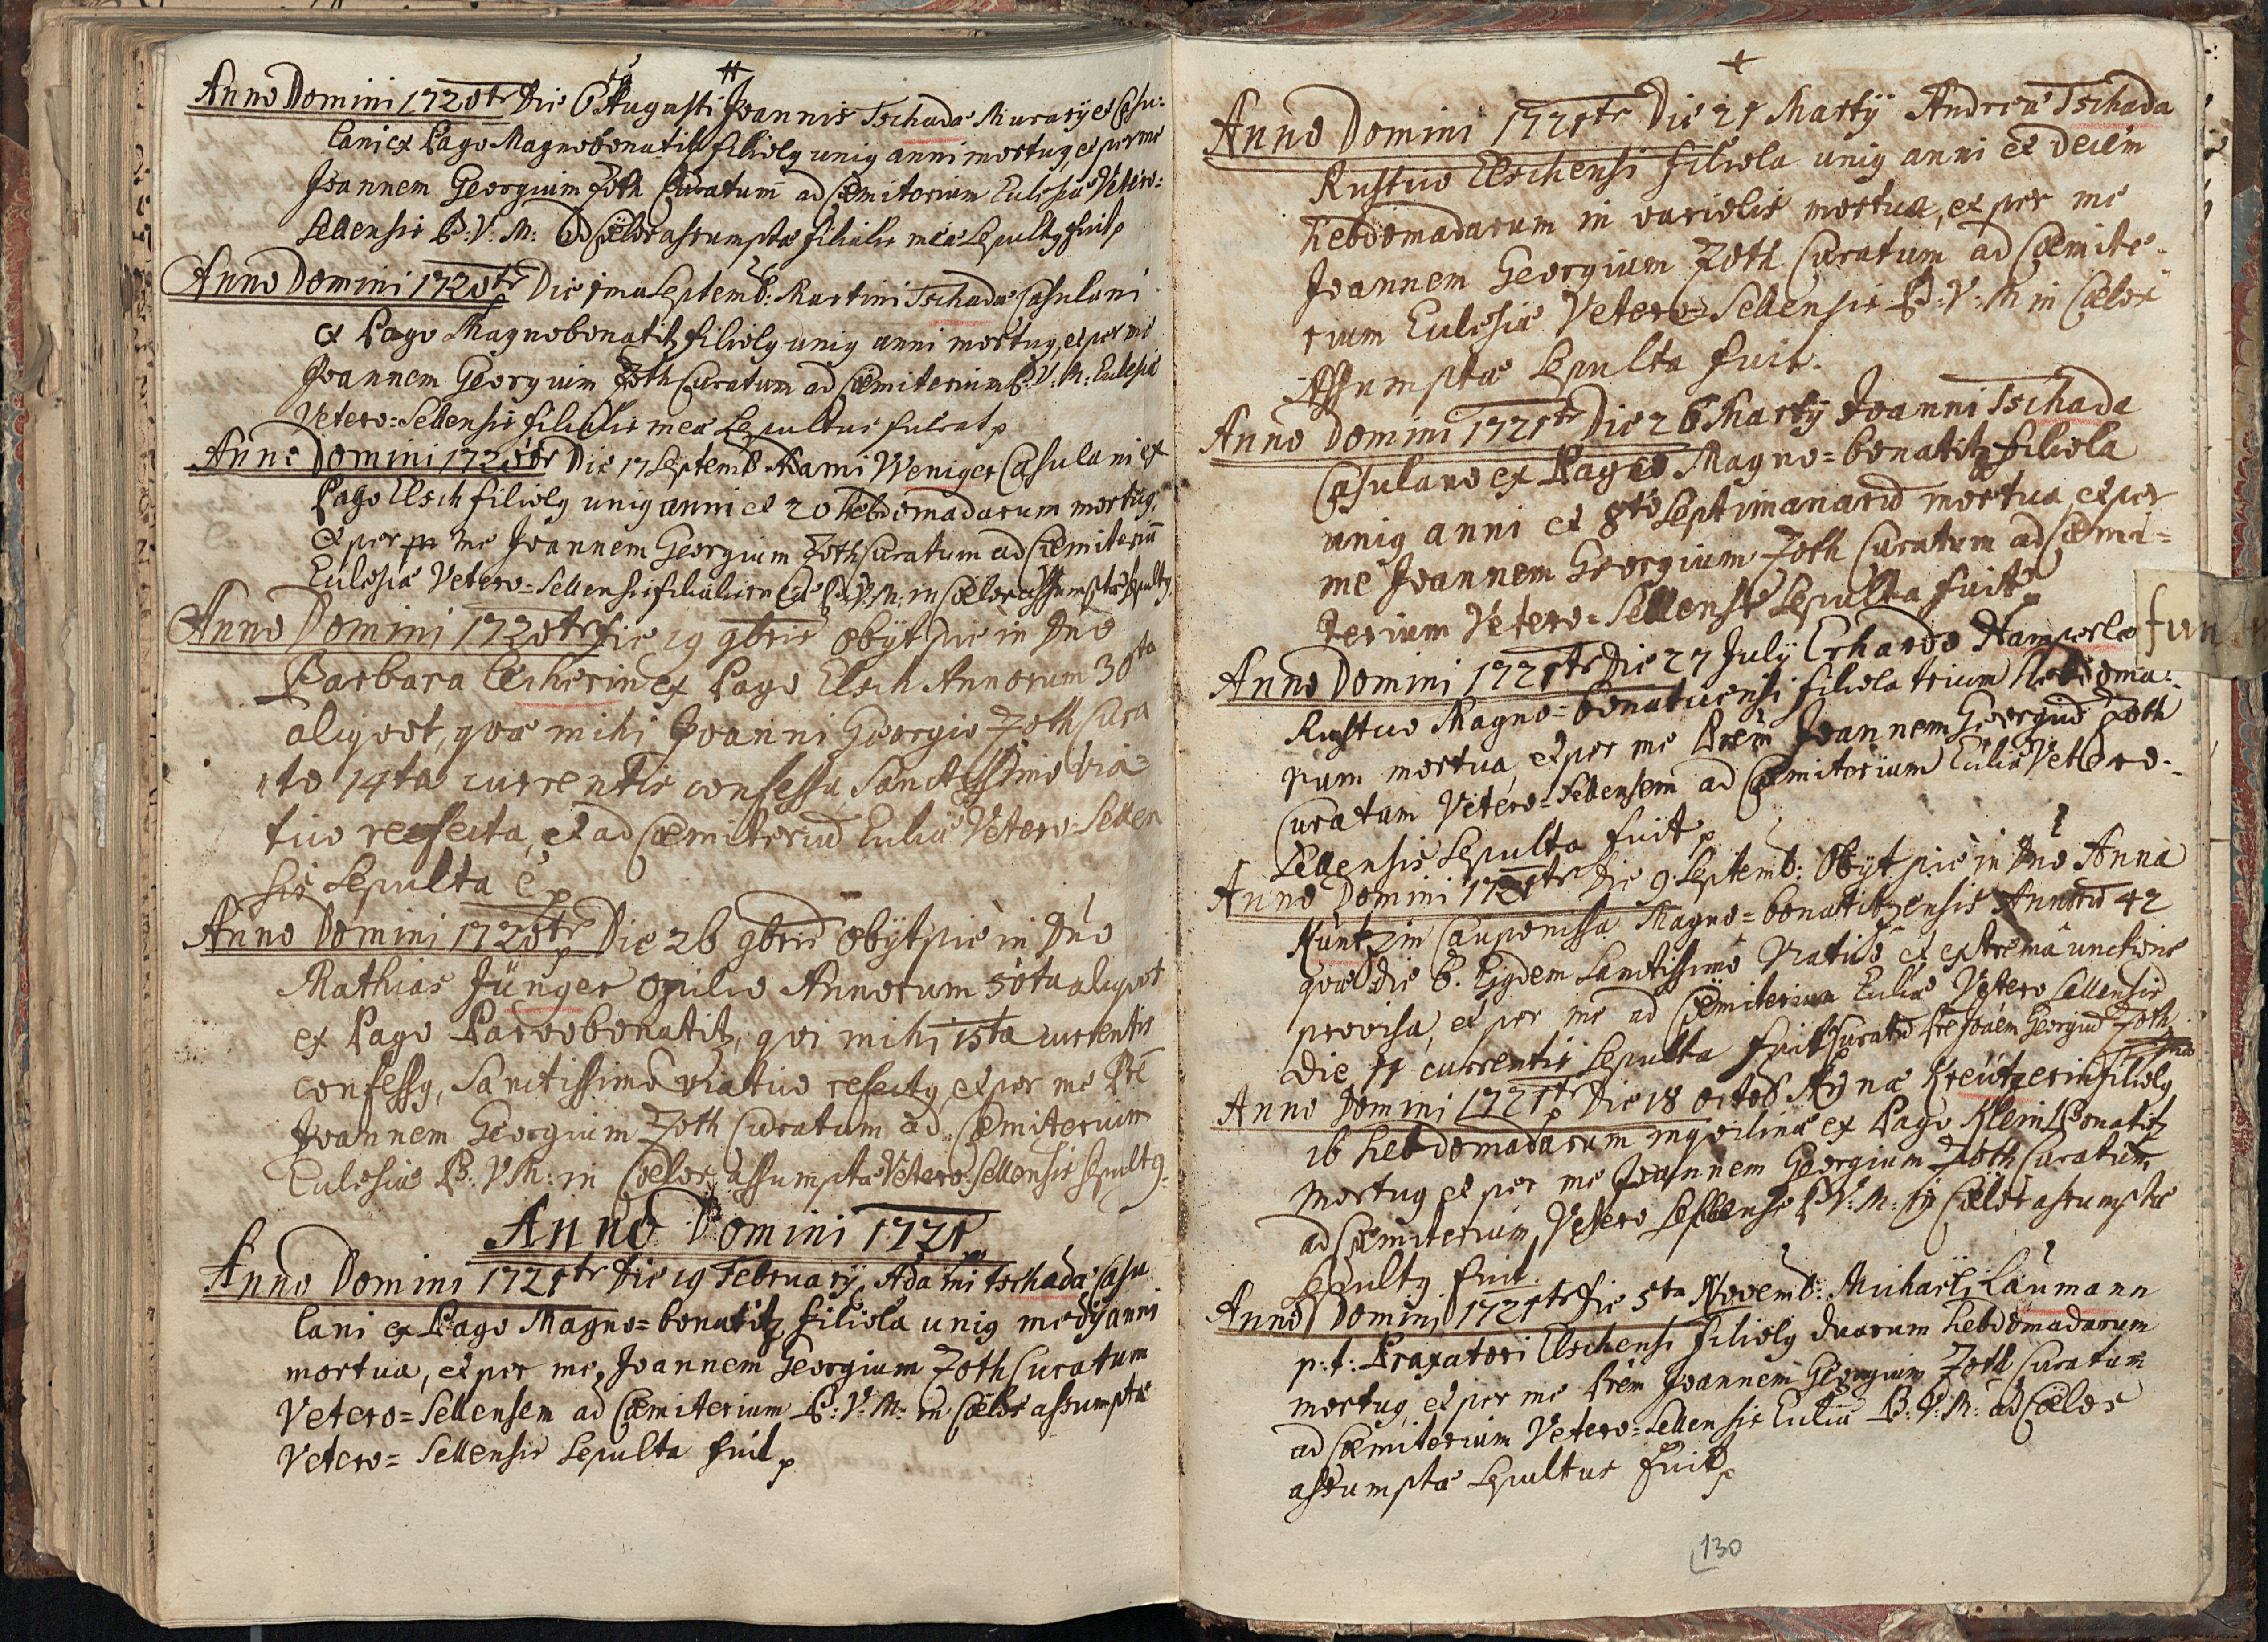 Anno Domini 1720tr Die 6 Augusti Joannis Tschada Murarÿ et Casu:
lani ex Pago Magnobonatitz filiolg unig anni mortug, et per me
Joannem Georgium Zoth Curatum ad Cœmiterium Eulesiæ Vetero:
Sellensis B: V: M: ad Cœlos assumptæ filialis meæ Sepultg fuit
Anno Domini 1720tr Die 1ma Septemb: Martini Tschada Casulani
ex Pago Magnobonatitz filiolg unig anni mortug, et per me
Joannem Georgium Zoth Curatum ad Cœmiterium B: V: M: Eulesiæ
Vetero=Sellensis filialis meæ Sepultus fuerat
Anno Domini 1720tr Die 17 Septemb Adami Weniger Casulani ex
Pago Elsch filiolg unig anni et 20 Hebdomadarum mortug,
et per me Joannem Georgium Zoth Curatum ad Cœmiteriū
Eulesiæ Vetero=Sellensis filialis meæ B: V: M: in Cœlos assumptæ sepultg
Anno Domini 1720tr Die 19 9bris obÿt pie in Dno
Barbara Escherin ex Pago Elsch Annorum 30sta
aliqvot, qvæ mihi Joanni Georgio Zoth Cura
to 14ta currentis confessa, Sanctissimo via=
tico refecta, et ad Cœmiteriū Eulīæ Vetero=Sellen
sis Sepulta ē
Anno Domini 1720tr Die 26 9bris obÿt pie in Dno
Mathias Jünger opilio Annorum 50ta aliqvot
ex Pago Parvobonatitz, qvi mihi 15ta currentis
confessg, Sanctissimo viatico refectg, et per me Prē
Joannem Georgium Zoth Curatum ad Cœmiterium
Eulesiæ B: V: M: in Cœlos assumptæ Vetero=Sellensis Sepultg.
Anno Domini 1721
Anno Domini 1721tr Die 19 Februarÿ Adami Tschada Casu
lani ex Pago Magno=bonatitz filiola unig medÿ anni
mortua, et per me, Joannem Georgium Zoth Curatum
Vetero=Sellensem ad Cœmiterium B: V: M: in Cœlos assumptæ
Vetero=Sellensis Sepulta fuit
Anno Domini 1721tr Die 21 Martÿ Andreæ Tschada
Rustico Elschensi filiola unig anni et decem
hebdomadarum in variolis mortua, et per me
Joannem Georgium Zoth Curatum ad Cœmite=
rium Eulesiæ Vetero=Sellensis B: V: M in Cœlos
Assumptæ Sepulta fuit.
Anno Domini 1721tr Die 26 Martÿ Joanni Tschada
Casulano ex Pago Magno=bonatitz filiola
unig anni et 8to Septimanarū mortua, et per
me Joannem Georgium Zoth Curatum ad Cœmi=
terium Vetero=Sellense Sepulta fuit
Anno Domini 1721tr Die 27 Julÿ Erhardo Hamperle
fun
Rustico Magno=bonaticensi filiola trium Hebdoma:
rum mortua, et per me Prēm Joannem Georgiū Zoth
Curatum Vetero=Sellensem ad Cœmiterium Eulīæ Vetero=
Sellensis Sepulta fuit
Anno Domini 1721tr Die 9 Septemb: Obÿt pie in Dno Anna
Kuntzin Cauponissa Magno=bonatitzensis Annorū 42
qvæ die 6. Ejgdem Sanctissimo Viatico et extrema unctione
provisa, et per me ad Cœmiterium Eulīæ Vetero Sellensis
die 11 currentis Sepulta fuit Curatū Pre Joāem Georgiū Zoth
Anno Domini 1721tr Die 18 octob Annæ Kreützerin filiolg
16 hebdomadarum inqvilinæ ex Pago Klein Bonatitz
mortug et per me Joannem Georgium Zoth Curatum
ad Cœmiterium Vetero Sellense B: V: M: in Cœlos assumptæ
Sepultg fuit.
Anno Domini 1721tr Die 5ta Novemb: Michaëli Laumann
p: t: Braxatori Elschensi filiolg duarum hebdomadarum
mortug, et per me Prēm Joannem Georgium Zoth Curatum
ad Cœmiterium Vetero=Sellensis Eulīæ B: V: M: ad Cœlos
assumptæ Sepultus fuit
130